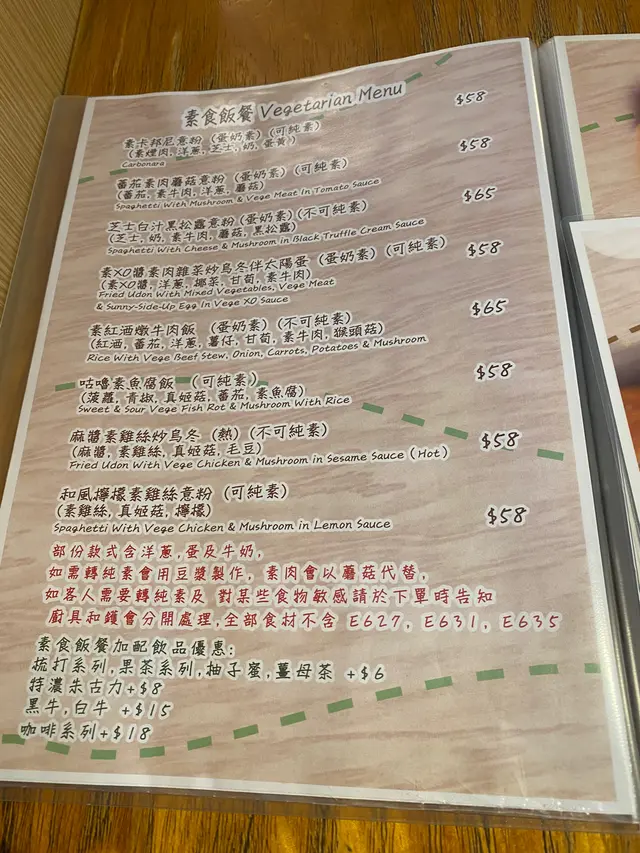 素食飯餐 Vegetarian Menu
素卡邦尼意粉 (蛋奶素) (可純素) $58
(素煙肉, 洋蔥, 芝士, 奶, 蛋黃)
Carbonara
番茄素肉蘑菇意粉 (蛋奶素) (可純素) $58
(番茄, 素牛肉, 洋蔥, 蘑菇)
Spaghetti With Mushroom & Vege Meat In Tomato Sauce
芝士白汁黑松露意粉 (蛋奶素) (不可純素) $65
(芝士, 奶, 素牛肉, 蘑菇, 黑松露)
Spaghetti With Cheese & Mushroom in Black Truffle Cream Sauce
素XO醬素肉雜菜炒烏冬伴太陽蛋 (蛋奶素) (可純素) $58
(素XO醬, 洋蔥, 椰菜, 甘荀, 素牛肉)
Fried Udon With Mixed Vegetables, Vege Meat
& Sunny-Side-Up Egg In Vege XO Sauce
素紅酒燉牛肉飯 (蛋奶素) (不可純素) $65
(紅酒, 番茄, 洋蔥, 薯仔, 甘荀, 素牛肉, 猴頭菇)
Rice With Vege Beef Stew, Onion, Carrots, Potatoes & Mushroom
咕嚕素魚腐飯 (可純素) $58
(菠蘿, 青椒, 真姬菇, 番茄, 素魚腐)
Sweet & Sour Vege Fish Rot & Mushroom With Rice
麻醬素雞絲炒烏冬 (熱) (不可純素) $58
(麻醬, 素雞絲, 真姬菇, 毛豆)
Fried Udon With Vege Chicken & Mushroom in Sesame Sauce (Hot)
和風檸檬素雞絲意粉 (可純素) $58
(素雞絲, 真姬菇, 檸檬)
Spaghetti With Vege Chicken & Mushroom in Lemon Sauce
部份款式含洋蔥, 蛋及牛奶,
如需轉純素會用豆漿製作, 素肉會以蘑菇代替,
如客人需要轉純素及 對某些食物敏感請於下單時告知
廚具和鑊會分開處理, 全部食材不含 E627, E631, E635
素食飯餐加配飲品優惠:
梳打系列, 果茶系列, 柚子蜜, 薑母茶 +$6
特濃朱古力+$8
黑牛, 白牛 +$15
咖啡系列+$18